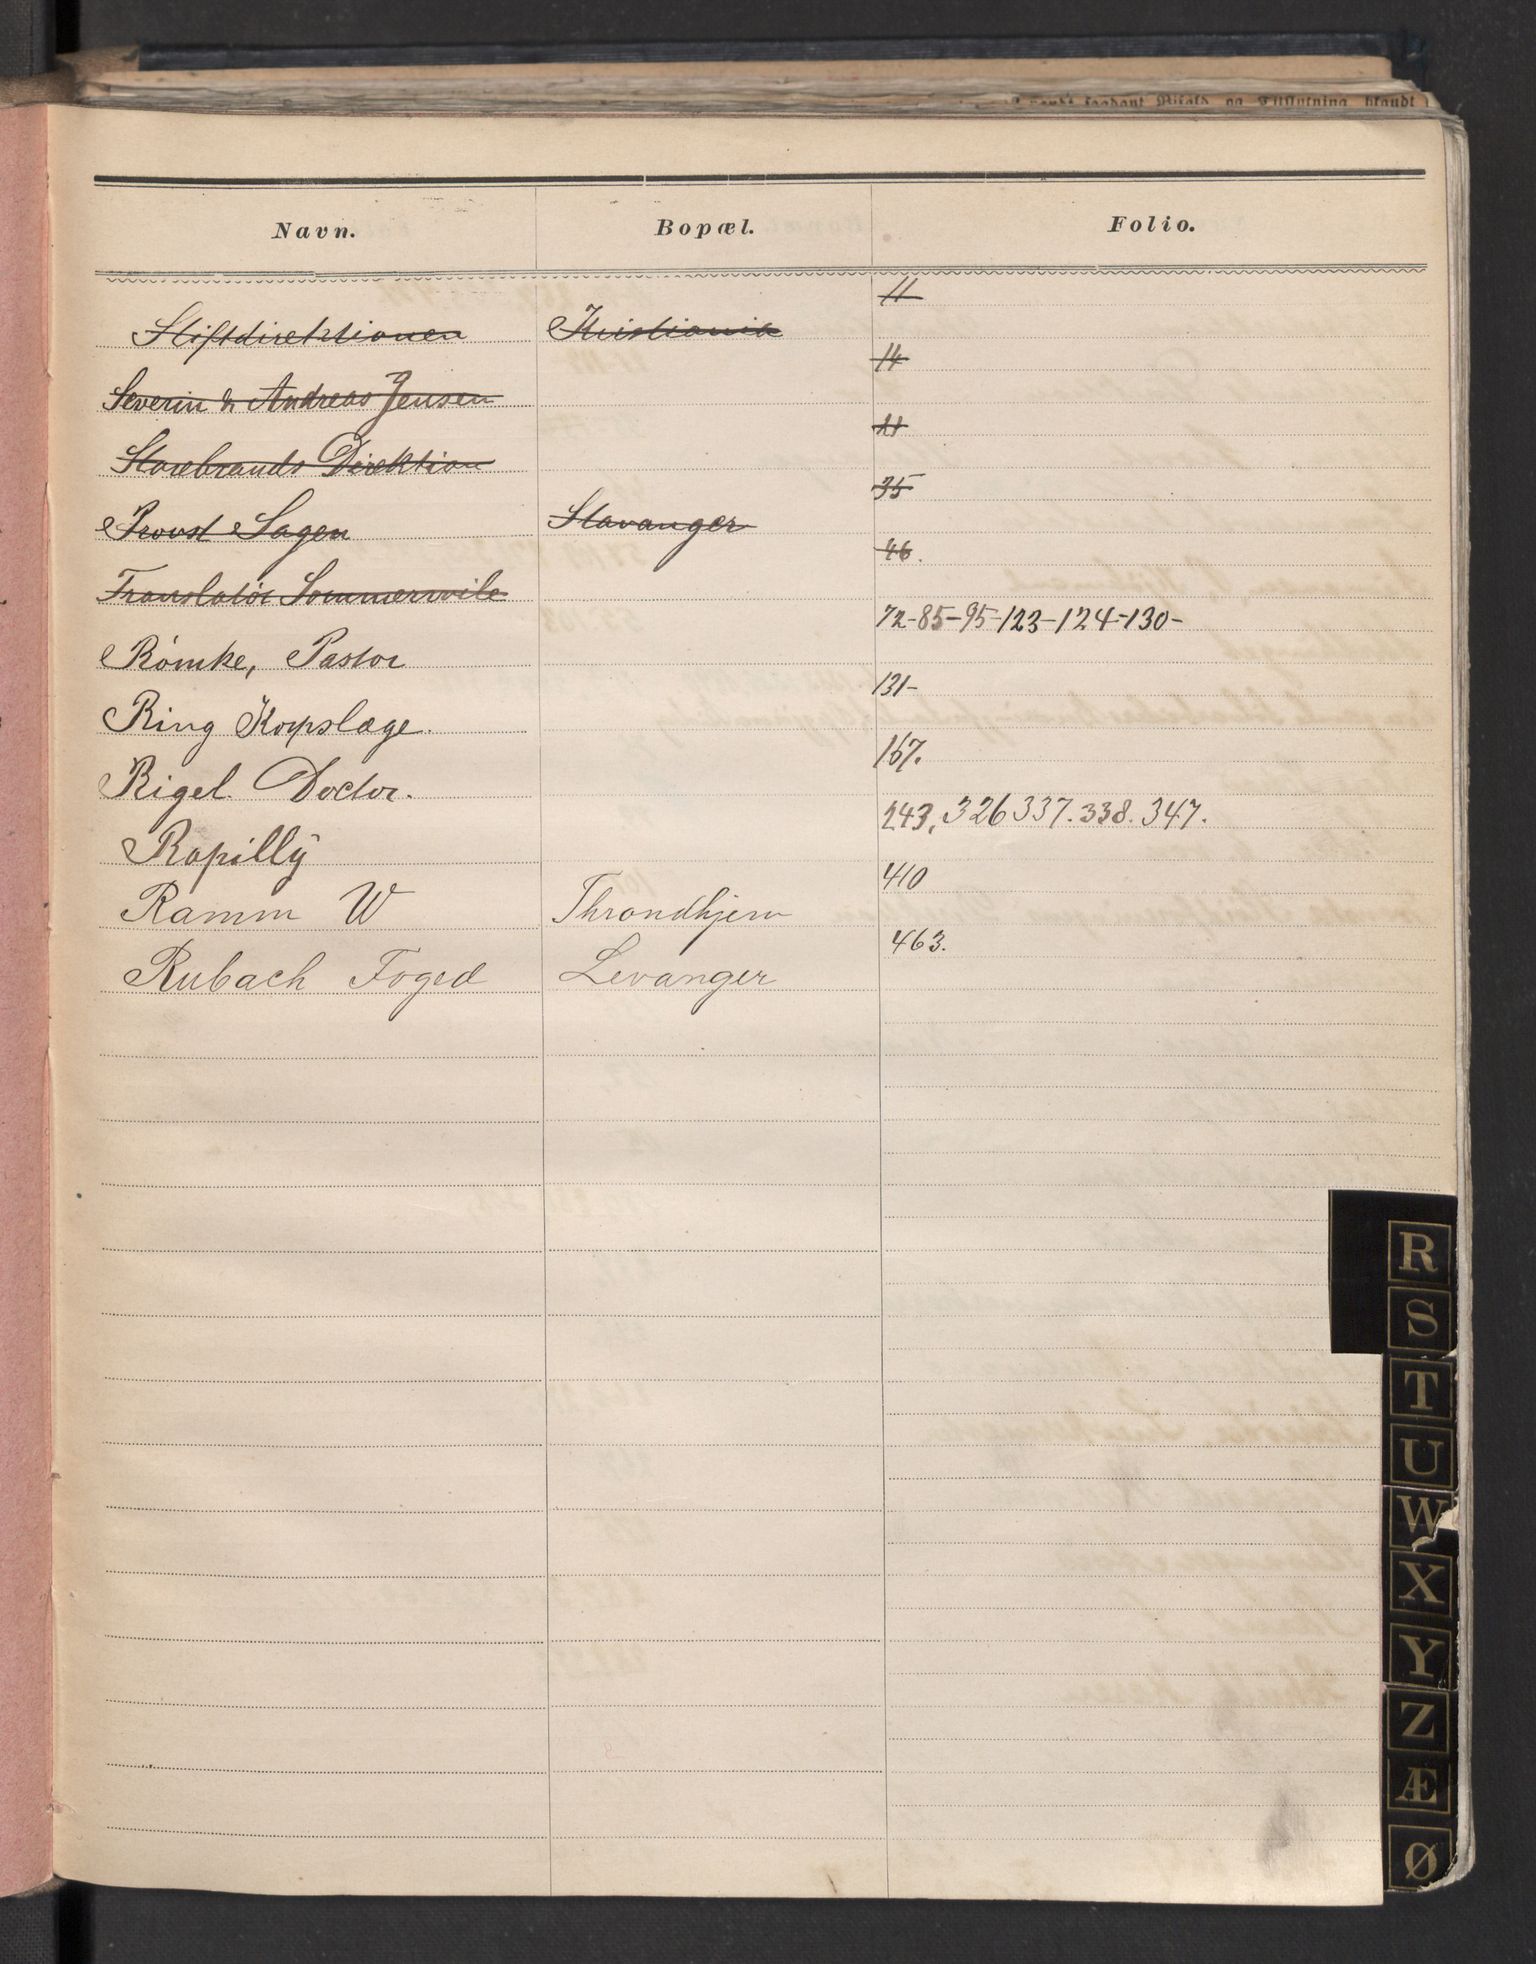 Navn. Bopæl. Folio.
Stiftdirektionen Kristiania 11
Severin & Andreas Jensen 14
Storebrands Direktion 21
Provst Sagen Stavanger 35
Translatør Sommerwile 46.
Rømke, Pastor 72-85-95-123-124-130-
Ring Korpslæge. 131-
Rigel. Doctor. 167.
Rapilly 243, 326 337. 338. 347.
Ramm W Throndhjem 410
Rubach Foged Levanger 463.
R
S
T
U
W
X
Y
Z
Æ
Ø